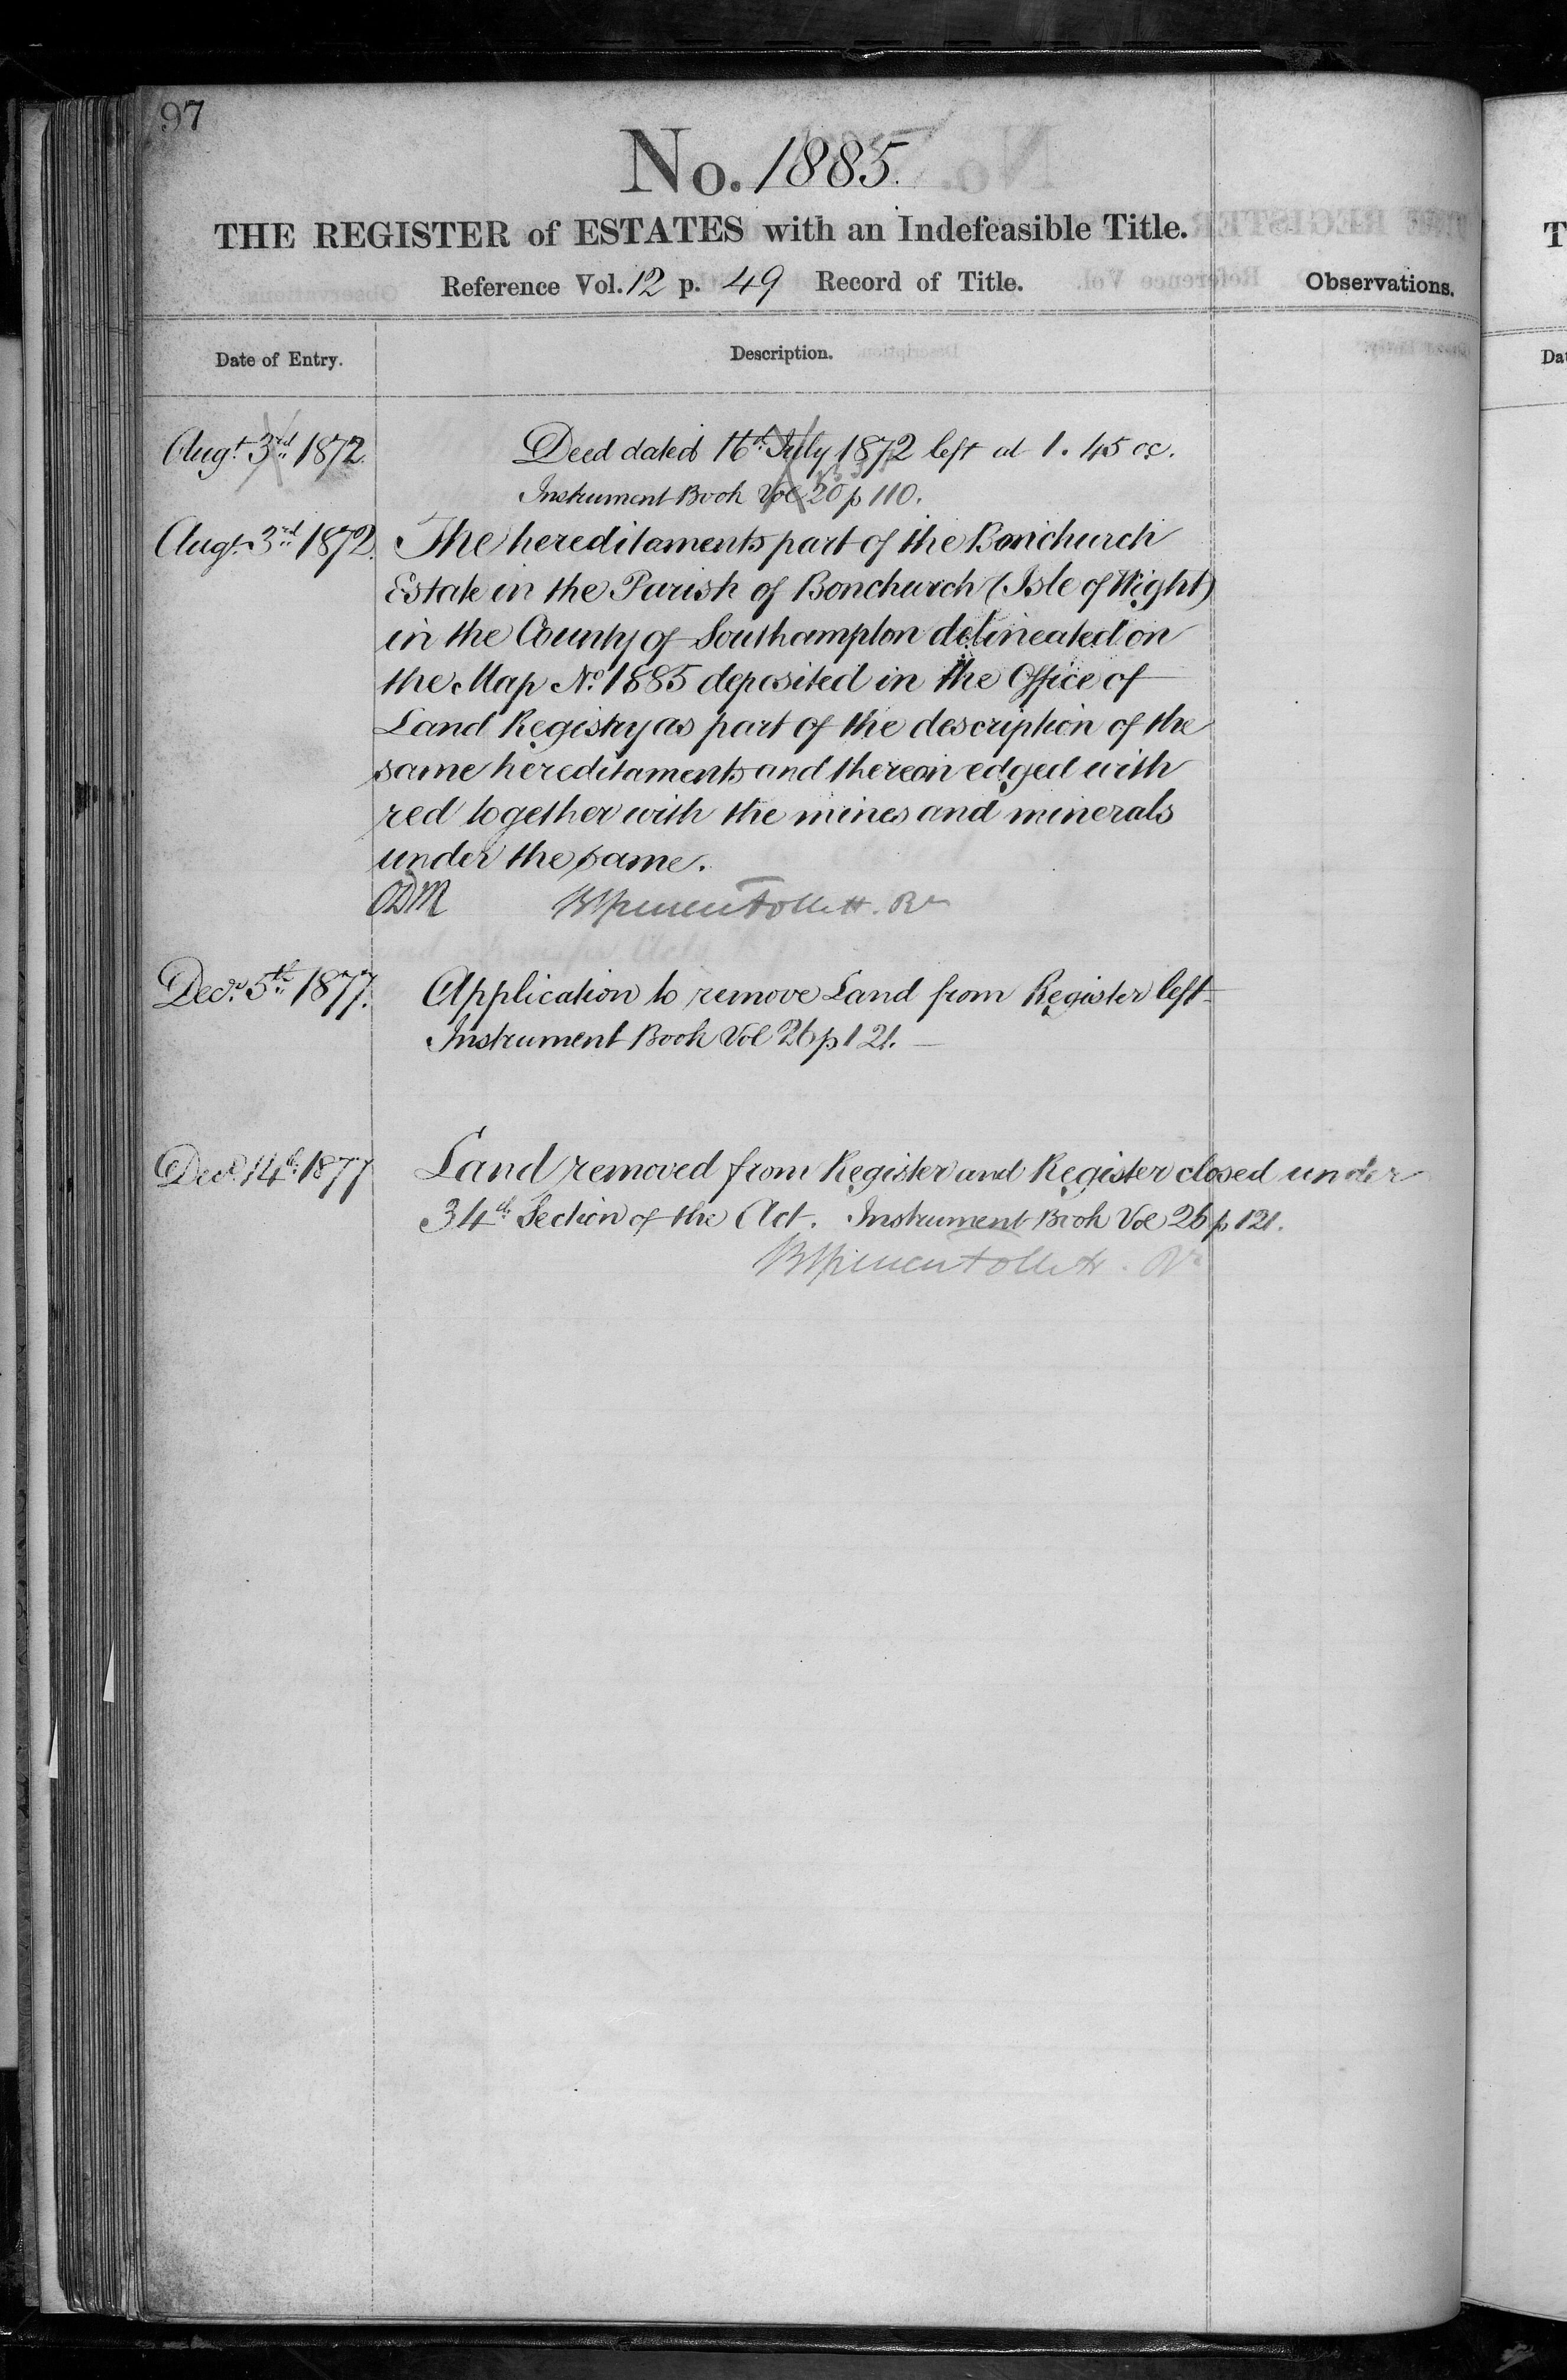 97
No. 1885.
THE REGISTER of ESTATES with an Indefeasible Title.
Reference Vol. 12 p. 49 Record of Title.
Observations.
Date of Entry.
Description.
Augt. 3rd 1872. Deed dated 16th July 1872 left at 1.45 oc.
Instrument Book Vol 20 p 110.
Augt. 3rd 1872. The hereditaments part of the Bonchurch
Estate in the Parish of Bonchurch (Isle of Wight)
in the County of Southampton delineated on
the Map No. 1885 deposited in the Office of
Land Registry as part of the description of the
same hereditaments and thereon edged with
red together with the mines and minerals
under the same.
Brent Spencer Follett. Rr
Decr. 5th 1877. Application to remove Land from Register left
Instrument Book Vol 26 p 121.
Decr. 14th 1877 Land removed from Register and Register closed under
34th Section of the Act. Instrument Book Vol 26 p 121.